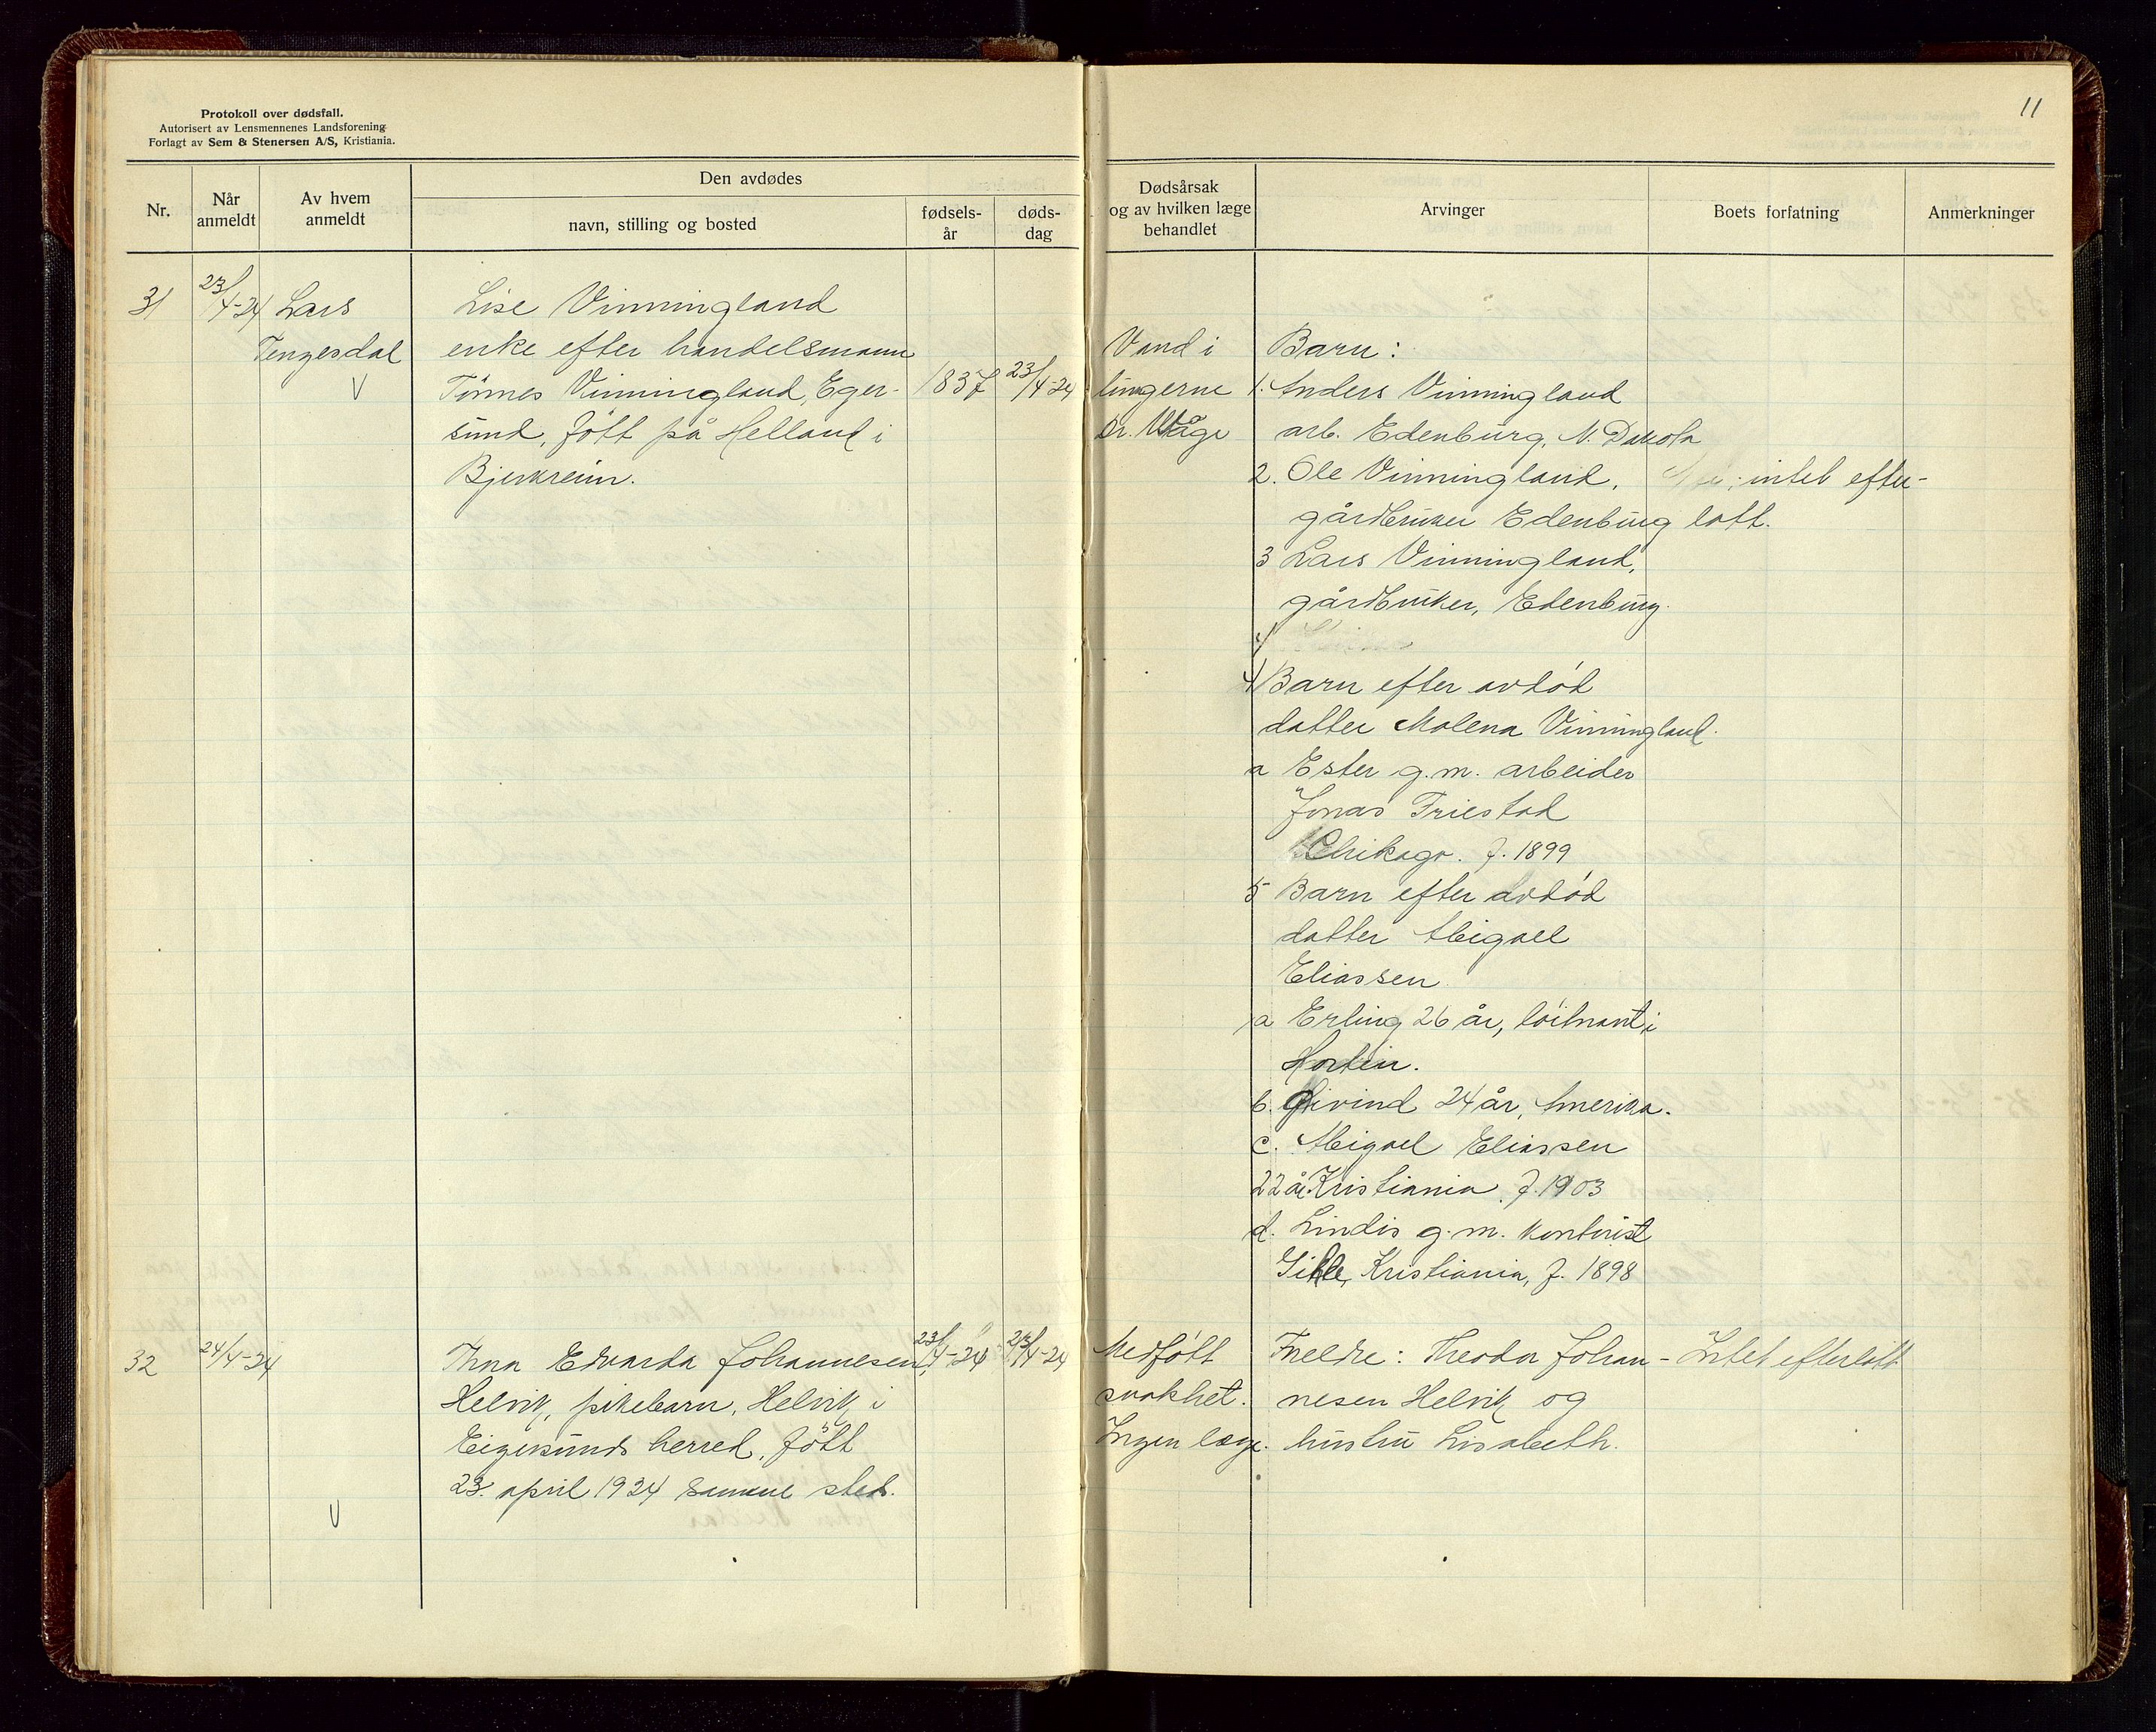 11
Protokoll over dødsfall.
Autorisert av Lensmennenes Landsforening
Forlagt av Sem & Stenersen A/S, Kristiania.
Nr.
Når anmeldt
Av hvem anmeldt
Den avdødes
navn, stilling og bosted
fødsels-år
døds-dag
Dødsårsak og av hvilken læge behandlet
Arvinger
Boets forfatning
Anmerkninger
31
23/4-24
Lars
Tengesdal
V
Lise Vinningland
enke efter handelsmann
Tönnes Vinningland, Eger-
sund, födt på Helland i
Bjerkreim.
1837
23/4-24
Vand i
lungerne
Dr. Våge
Barn:
1. Anders Vinningland
arb. Edenburg, N. Dakota
2. Ole Vinningland,
gårdbruker Edenburg
3 Lars Vinningland,
gårdbruker, Edenburg.
4/
4/ Barn efter avdød
datter Malena Vinningland.
a Ester g.m. arbeider
Jonas Friestad
Chikago. f. 1899
5 Barn efter avdød
datter Abigael
Eliassen
a Erling 26 år, löitnant i
Horten.
b. Øivind 24 år, Amerika.
c. Abigael Eliassen
22 år Kristiania f. 1903
d. Lindis g.m. kontorist
Kristiania, f. 1898
intet efter-
latt.
32
24/4-24
V
Edvarda Johannesen,
Helvik, pikebarn, Helvik i
Eigersunds herred, födt
23. april 1924 samme sted.
23/4-24
23/4-24
Medfödt
svakhet.
Ingen læge.
Foreldre: Theodor Johan-
nesen Helvik og
hustru Lisabeth.
Intet efterlatt